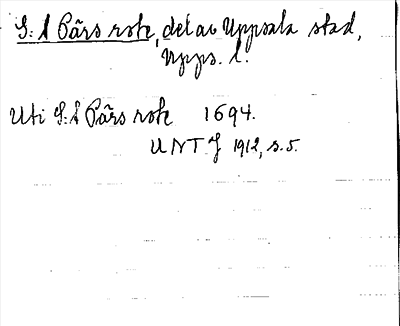 S:t Pärs rote, del av Uppsala stad,
Upps. l.
Uti S:t Pärs rote 1694.
UNT J 1912, s. 5.